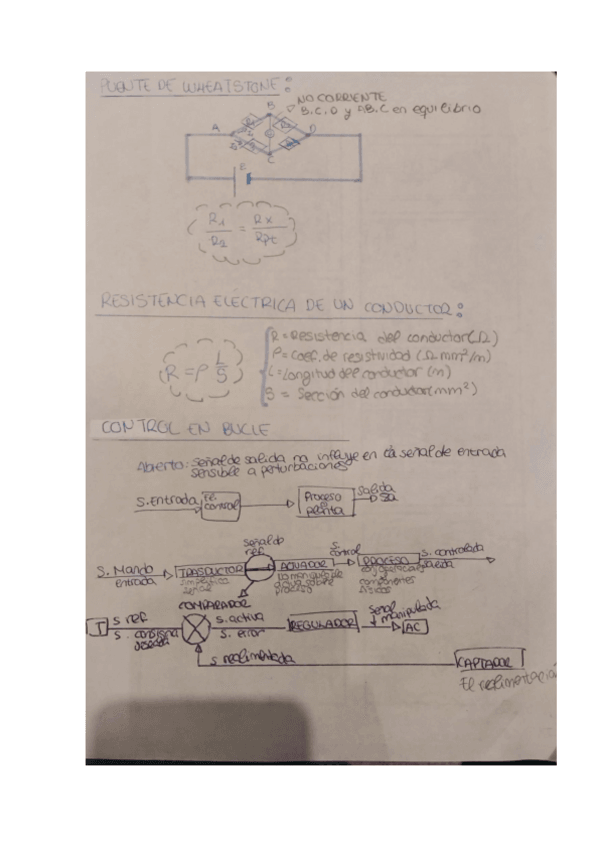 PUENTE DE WHEATSTONE:
NO CORRIENTE
B.C.D y AB.C en equilibrio
B
A
D
C
E
R1/R2 = Rx/RPt
RESISTENCIA ELÉCTRICA DE UN CONDUCTOR:
R = Resistencia del conductor (Ω)
ρ = coef. de resistividad (Ω mm²/m)
R = ρ L/S
L = Longitud del conductor (m)
S = Sección del conductor (mm²)
CONTROL EN BUCLE
Abierto: Señal de salida no influye en la señal de entrada
sensible a perturbaciones
S. Entrada
El. control
Proceso o planta
Salida
Señal de ref.
S. Mando
entrada
TRASDUCTOR
ACTUADOR
S. control
PROCESO
S. controlada
salida
componentes
físicos
COMPARADOR
T
S ref
S. consigna
deseada
S. activa
S. error
REGULADOR
Señal manipulada
AC
S realimentada
CAPTADOR
El realimentación